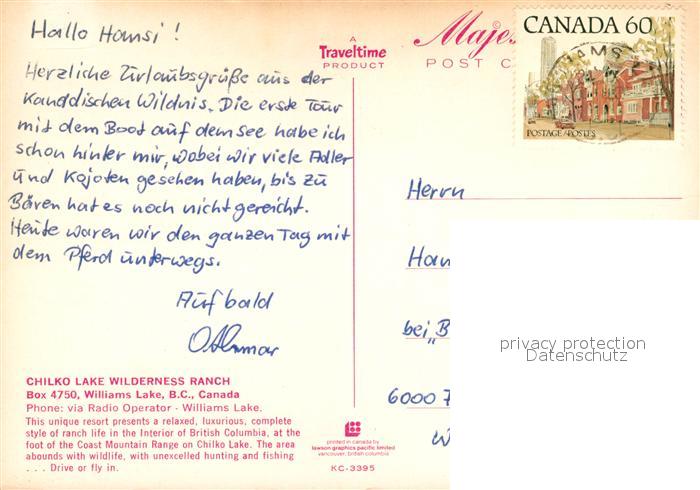 Hallo Hansi!
Herzliche Urlaubsgrüße aus der
Kanadischen Wildnis. Die erste Tour
mit dem Boot auf dem See habe ich
schon hinter mir, wobei wir viele Adler
und Kojoten gesehen haben, bis zu
Bären hat es noch nicht gereicht.
Heute waren wir den ganzen Tag mit
dem Pferd unterwegs.
Auf bald
Othmar
CHILKO LAKE WILDERNESS RANCH
Box 4750, Williams Lake, B.C., Canada
Phone: via Radio Operator - Williams Lake.
This unique resort presents a relaxed, luxurious, complete
style of ranch life in the Interior of British Columbia, at the
foot of the Coast Mountain Range on Chilko Lake. The area
abounds with wildlife, with unexcelled hunting and fishing
. . . Drive or fly in.
A
Traveltime
PRODUCT
printed in canada by
lawson graphics pacific limited
vancouver, british columbia
KC-3395
Majes
POST C
CANADA 60
POSTAGE/POSTES
Herrn
Han
bei „B
6000 7
W
privacy protection
Datenschutz